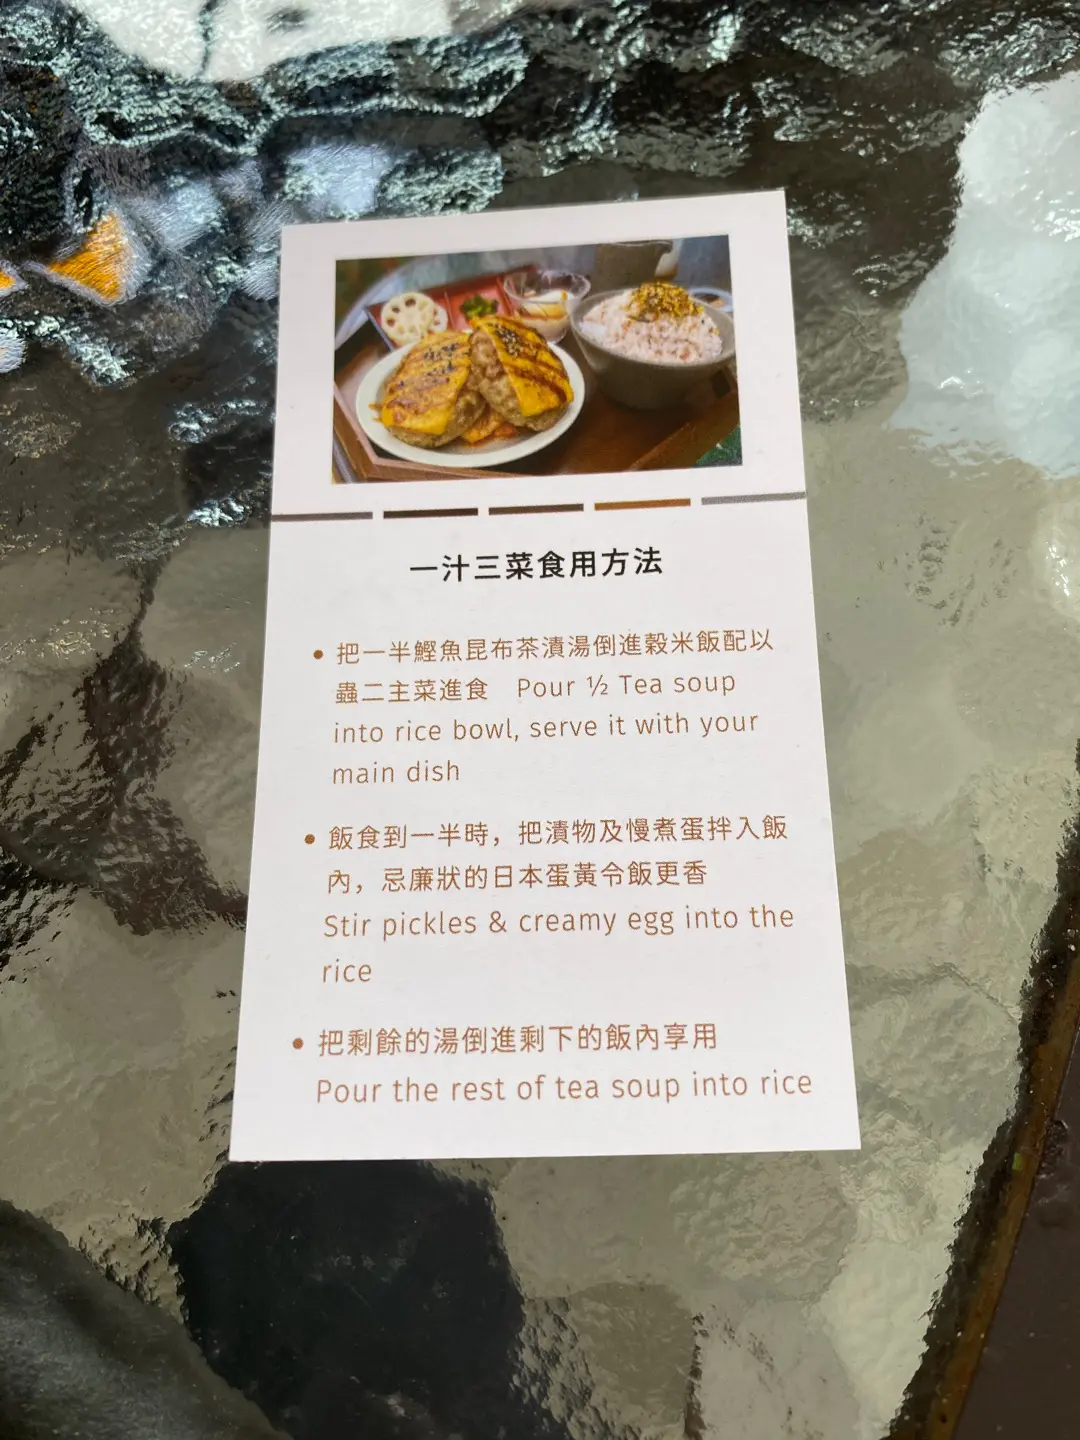 一汁三菜食用方法
• 把一半鰹魚昆布茶漬湯倒進穀米飯配以
蟲二主菜進食 Pour ½ Tea soup
into rice bowl, serve it with your
main dish
• 飯食到一半時，把漬物及慢煮蛋拌入飯
內，忌廉狀的日本蛋黃令飯更香
Stir pickles & creamy egg into the
rice
• 把剩餘的湯倒進剩下的飯內享用
Pour the rest of tea soup into rice